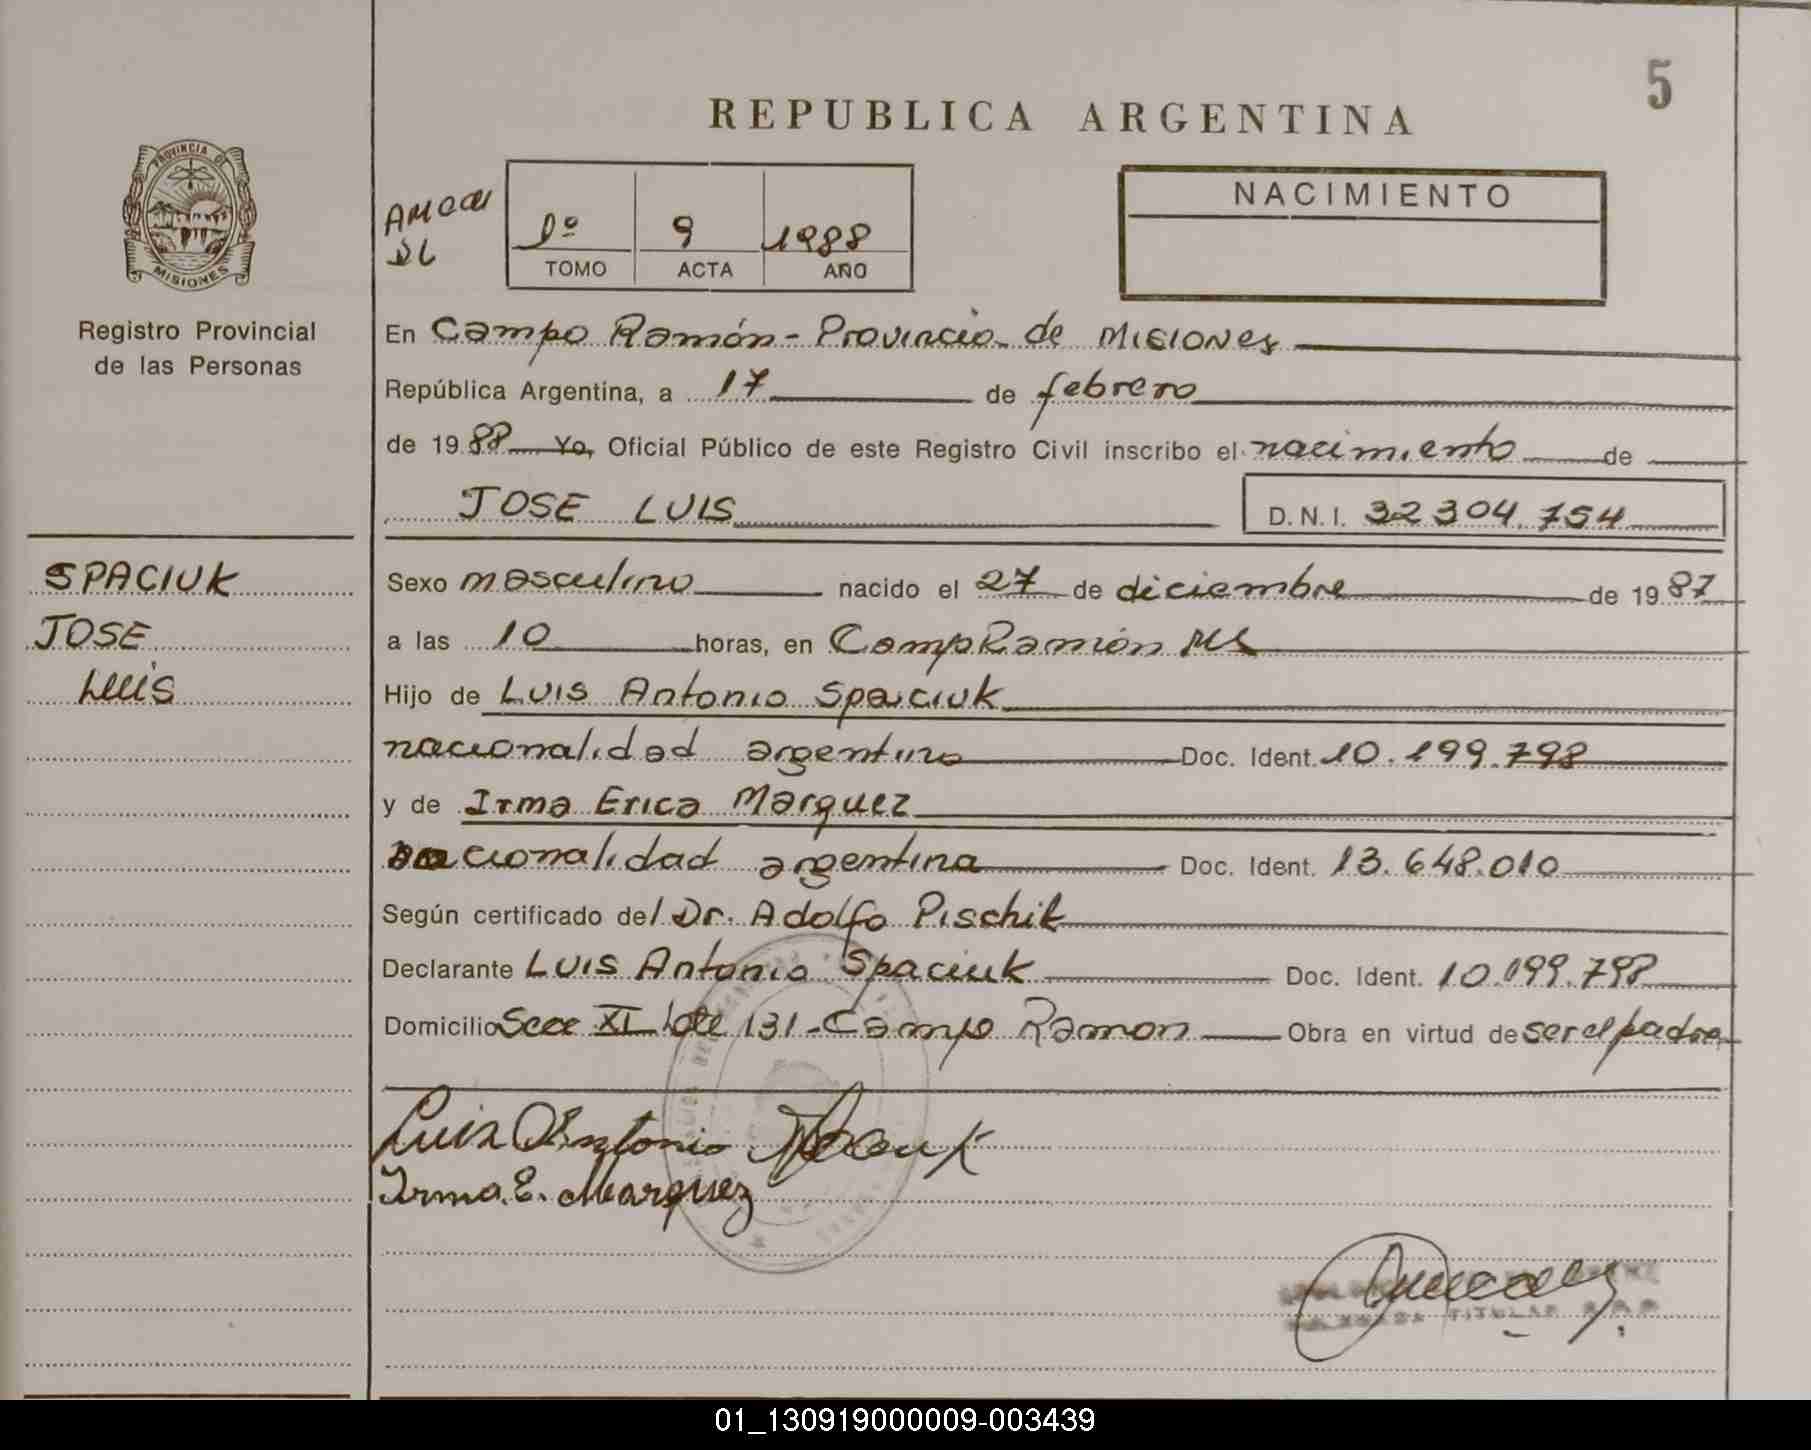 5
REPUBLICA ARGENTINA
PROVINCIA DE
MISIONES
Registro Provincial
de las Personas
1º 9 1988
TOMO ACTA AÑO
NACIMIENTO
En Campo Ramón - Provincia de Misiones
República Argentina, a 17 de febrero
de 1988 Yo, Oficial Público de este Registro Civil inscribo el nacimiento de
JOSE LUIS D.N.I. 32304.754
SPACIUK
JOSE
Luis
Sexo masculino nacido el 27 de diciembre de 1987
a las 10 horas, en Camp Ramón Ms
Hijo de Luis Antonio Spaciuk
nacionalidad argentino Doc. Ident. 10.199.798
y de Irma Erica Marquez
nacionalidad argentina Doc. Ident. 13.648.010
Según certificado del Dr. Adolfo Pischik
Declarante Luis Antonio Spaciuk Doc. Ident. 10.199.798
Domicilio Secc XI lote 131 - Campo Ramon Obra en virtud de ser el padre
Luis Antonio Spaciuk
Irma E. Marquez
TITULAR
01_130919000009-003439